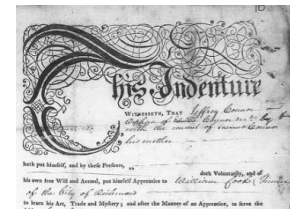 This Indenture
WITNESSETH, THAT Jeffrey Connor
Orphan of
with the consent of Connor
his mother
hath put himself, and by these Presents,
doth Voluntarily, and of
his own free Will and Accord, put himself Apprentice to William Cook
of the City of Richmond
to learn his Art, Trade and Mystery; and after the Manner of an Apprentice, to serve the